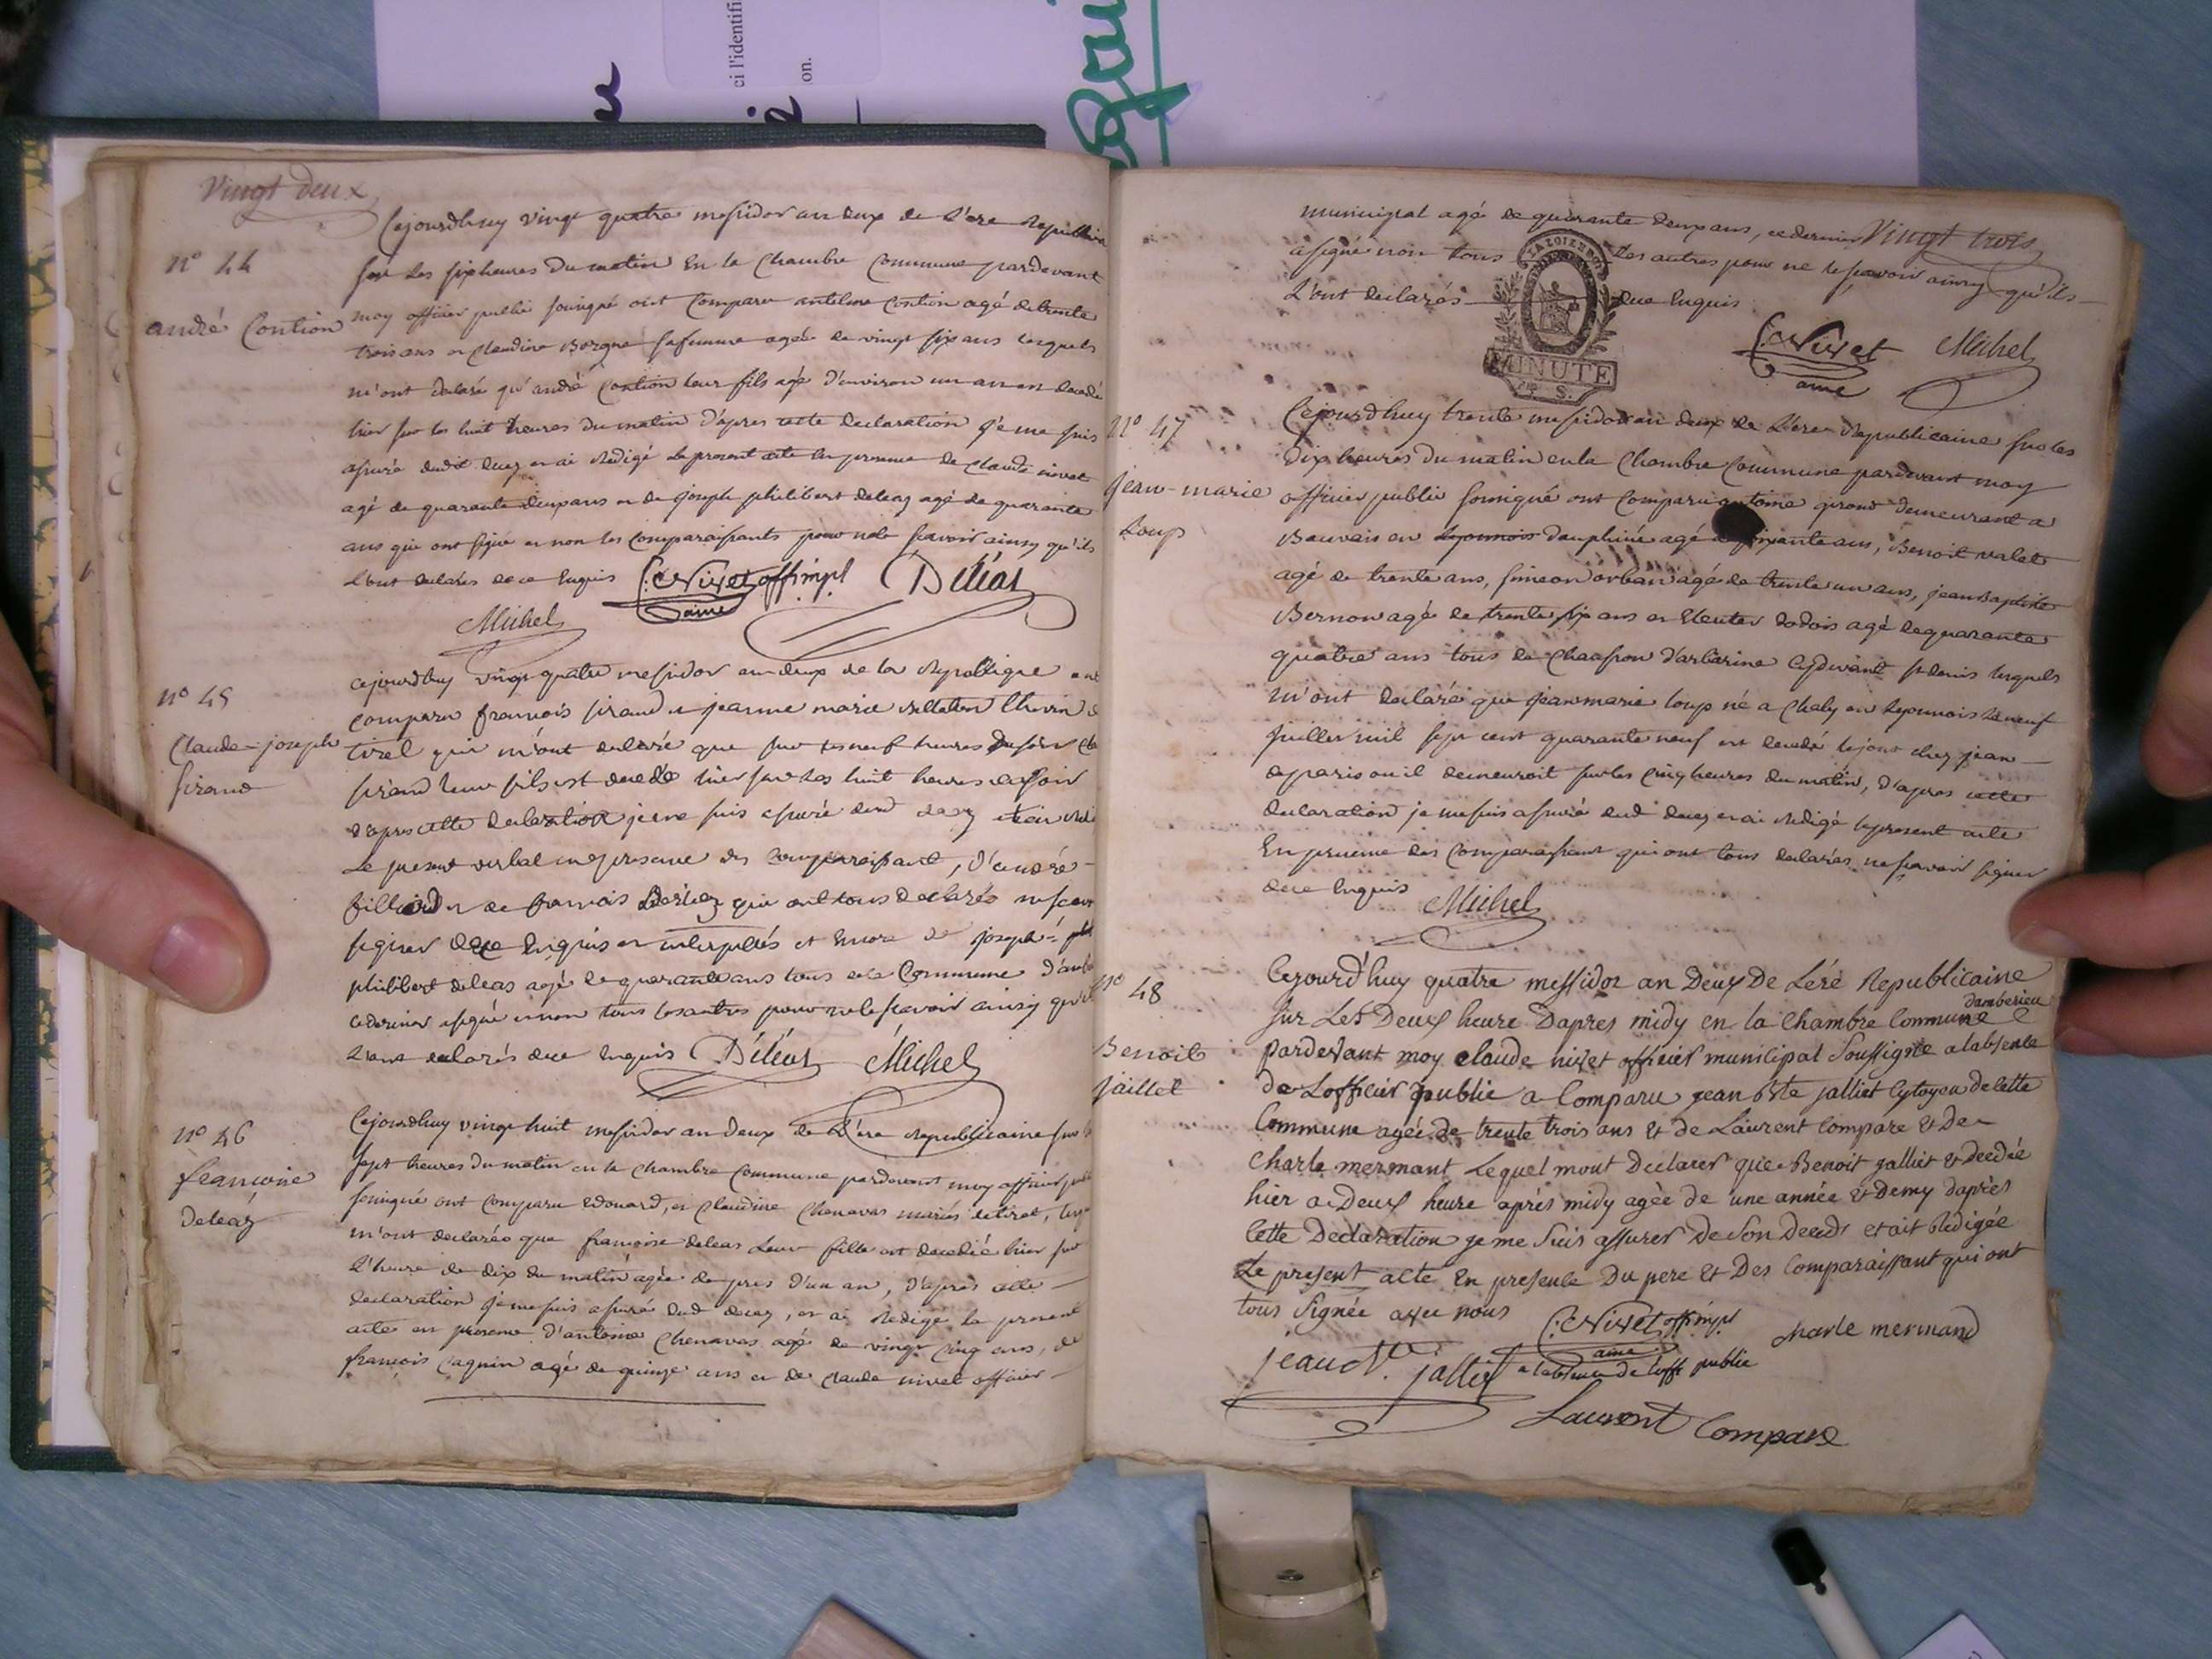 ci l'identifi
on.
Vingt deux
Cejourdhuy vingt quatre messidor an deux de L'ere Republicaine
n° 44
sur les six heures du matin En la Chambre Commune pardevant
andré Contion
moy officier public sousigné ont Comparu antelme Contion agé de trente
trois ans et Claudine Borgne sa femme agée de vingt six ans lesquels
m'ont declaré qu'andré Contion leur fils agé d'environ un an est decedé
hier sur les huit heures du matin d'apres cette declaration je me suis
assuré dudit decez et ai Redigé le present acte en presence de Claude nivet
agé de quarante deux ans et de joseph philibert deleaz agé de quarante
ans qui ont signé et non les Comparaissants pour ne le scavoir ainsy qu'ils
L'ont declarés de ce Enquis C. Nivet off. mpl Déléas
ainé
Michel
cejourdhuy vingt quatre messidor an deux de la Republique ont
n° 45
comparu francois sirand et jeanne marie
Claude-joseph
sirand
tirel qui m'ont declaré que sur les neuf heures du soir
sirand leur fils est decedé hier sur les huit heures du soir
d'apres cette declaration je me suis assuré dud decez et ai
Le present verbal en presence des Comparaissant, d'andré
et de francois qui ont tous declarés ne scavoir
signer de ce Enquis et interpellés et Encore de joseph
philibert deleas agé de quarante ans tous de la Commune
ce dernier a signé et non tous les autres pour ne le scavoir ainsy
L'ont declarés de ce Enquis Déléas Michel
n° 46
Cejourdhuy vingt huit messidor an deux de L'ere Republicaine sur les
francoise
deleaz
sept heures du matin en la Chambre Commune pardevant moy officier
sousigné ont Comparu Edouard, et Claudine Chenavas mariés
m'ont declarés que francoise deleas Leur fille est decedé hier sur
L'heure de dix du matin agée de pres d'un an, d'apres cette
declaration je me suis assuré dud decez, et ai Redigé le present
acte en presence d'antoine Chenavas agé de vingt cinq ans, de
francois agé de quinze ans et de Claude nivet officier
municipal agé de quarante deux ans, ce dernier
Vingt trois
a signé non tous les autres pour ne le scavoir ainsy qu'ils
L'ont declarés de ce Enquis
MINUTE
C. Nivet Michel
ainé
N° 47
Cejourdhuy trente messidor an deux de L'ere Republicaine sur les
dix heures du matin en la Chambre Commune pardevant moy
jean-marie
Loup
officier public sousigné ont Comparu antoine giroud demeurant a
Bauvais en Lyonnois dauphiné agé de ans, Benoit valet
agé de trente ans, simeon orban agé de trente un ans, jean Baptiste
Bernon agé de trente six ans et dodois agé de quarante
quatre ans tous de Chausson d'arbarine Cydevant st denis lesquels
m'ont declaré que jean marie loup né a Chaly en Lyonnois le neuf
juillet mil sept cent quarante neuf est decedé chez jean
deparis ou il demeuroit sur les cinq heures du matin, d'apres cette
declaration je me suis assuré dud decez et ai Redigé le present acte
En presence des Comparaissant qui ont tous declarés ne scavoir signer
de ce Enquis Michel
N° 48
Benoit
jaillet
Cejourd'huy quatre messidor an Deux De Léré Republicaine
sur Les Deux heure Dapres midy en la Chambre Commune damberieu
pardevant moy claude nivet officier municipal soussigné a labsence
de Lofficier publie a Comparu jean Bte jalliet Cytoyen de cette
Commune agée de trente trois ans et de Laurent Compare et De
Charle mermant Lequel mont Declarer que Benoit jalliet et decédée
hier a Deux heure aprés midy agée de une année et Demy daprés
cette Declaration je me suis assurer de son Decedt et ait Rédigée
Le present acte En presence Du pere et Des Comparaissant qui ont
tous signée avec nous C. Nivet off mpl
ainé
Charle mermand
jean Bte jalliet a labsence de loff publie
Laurent Compare